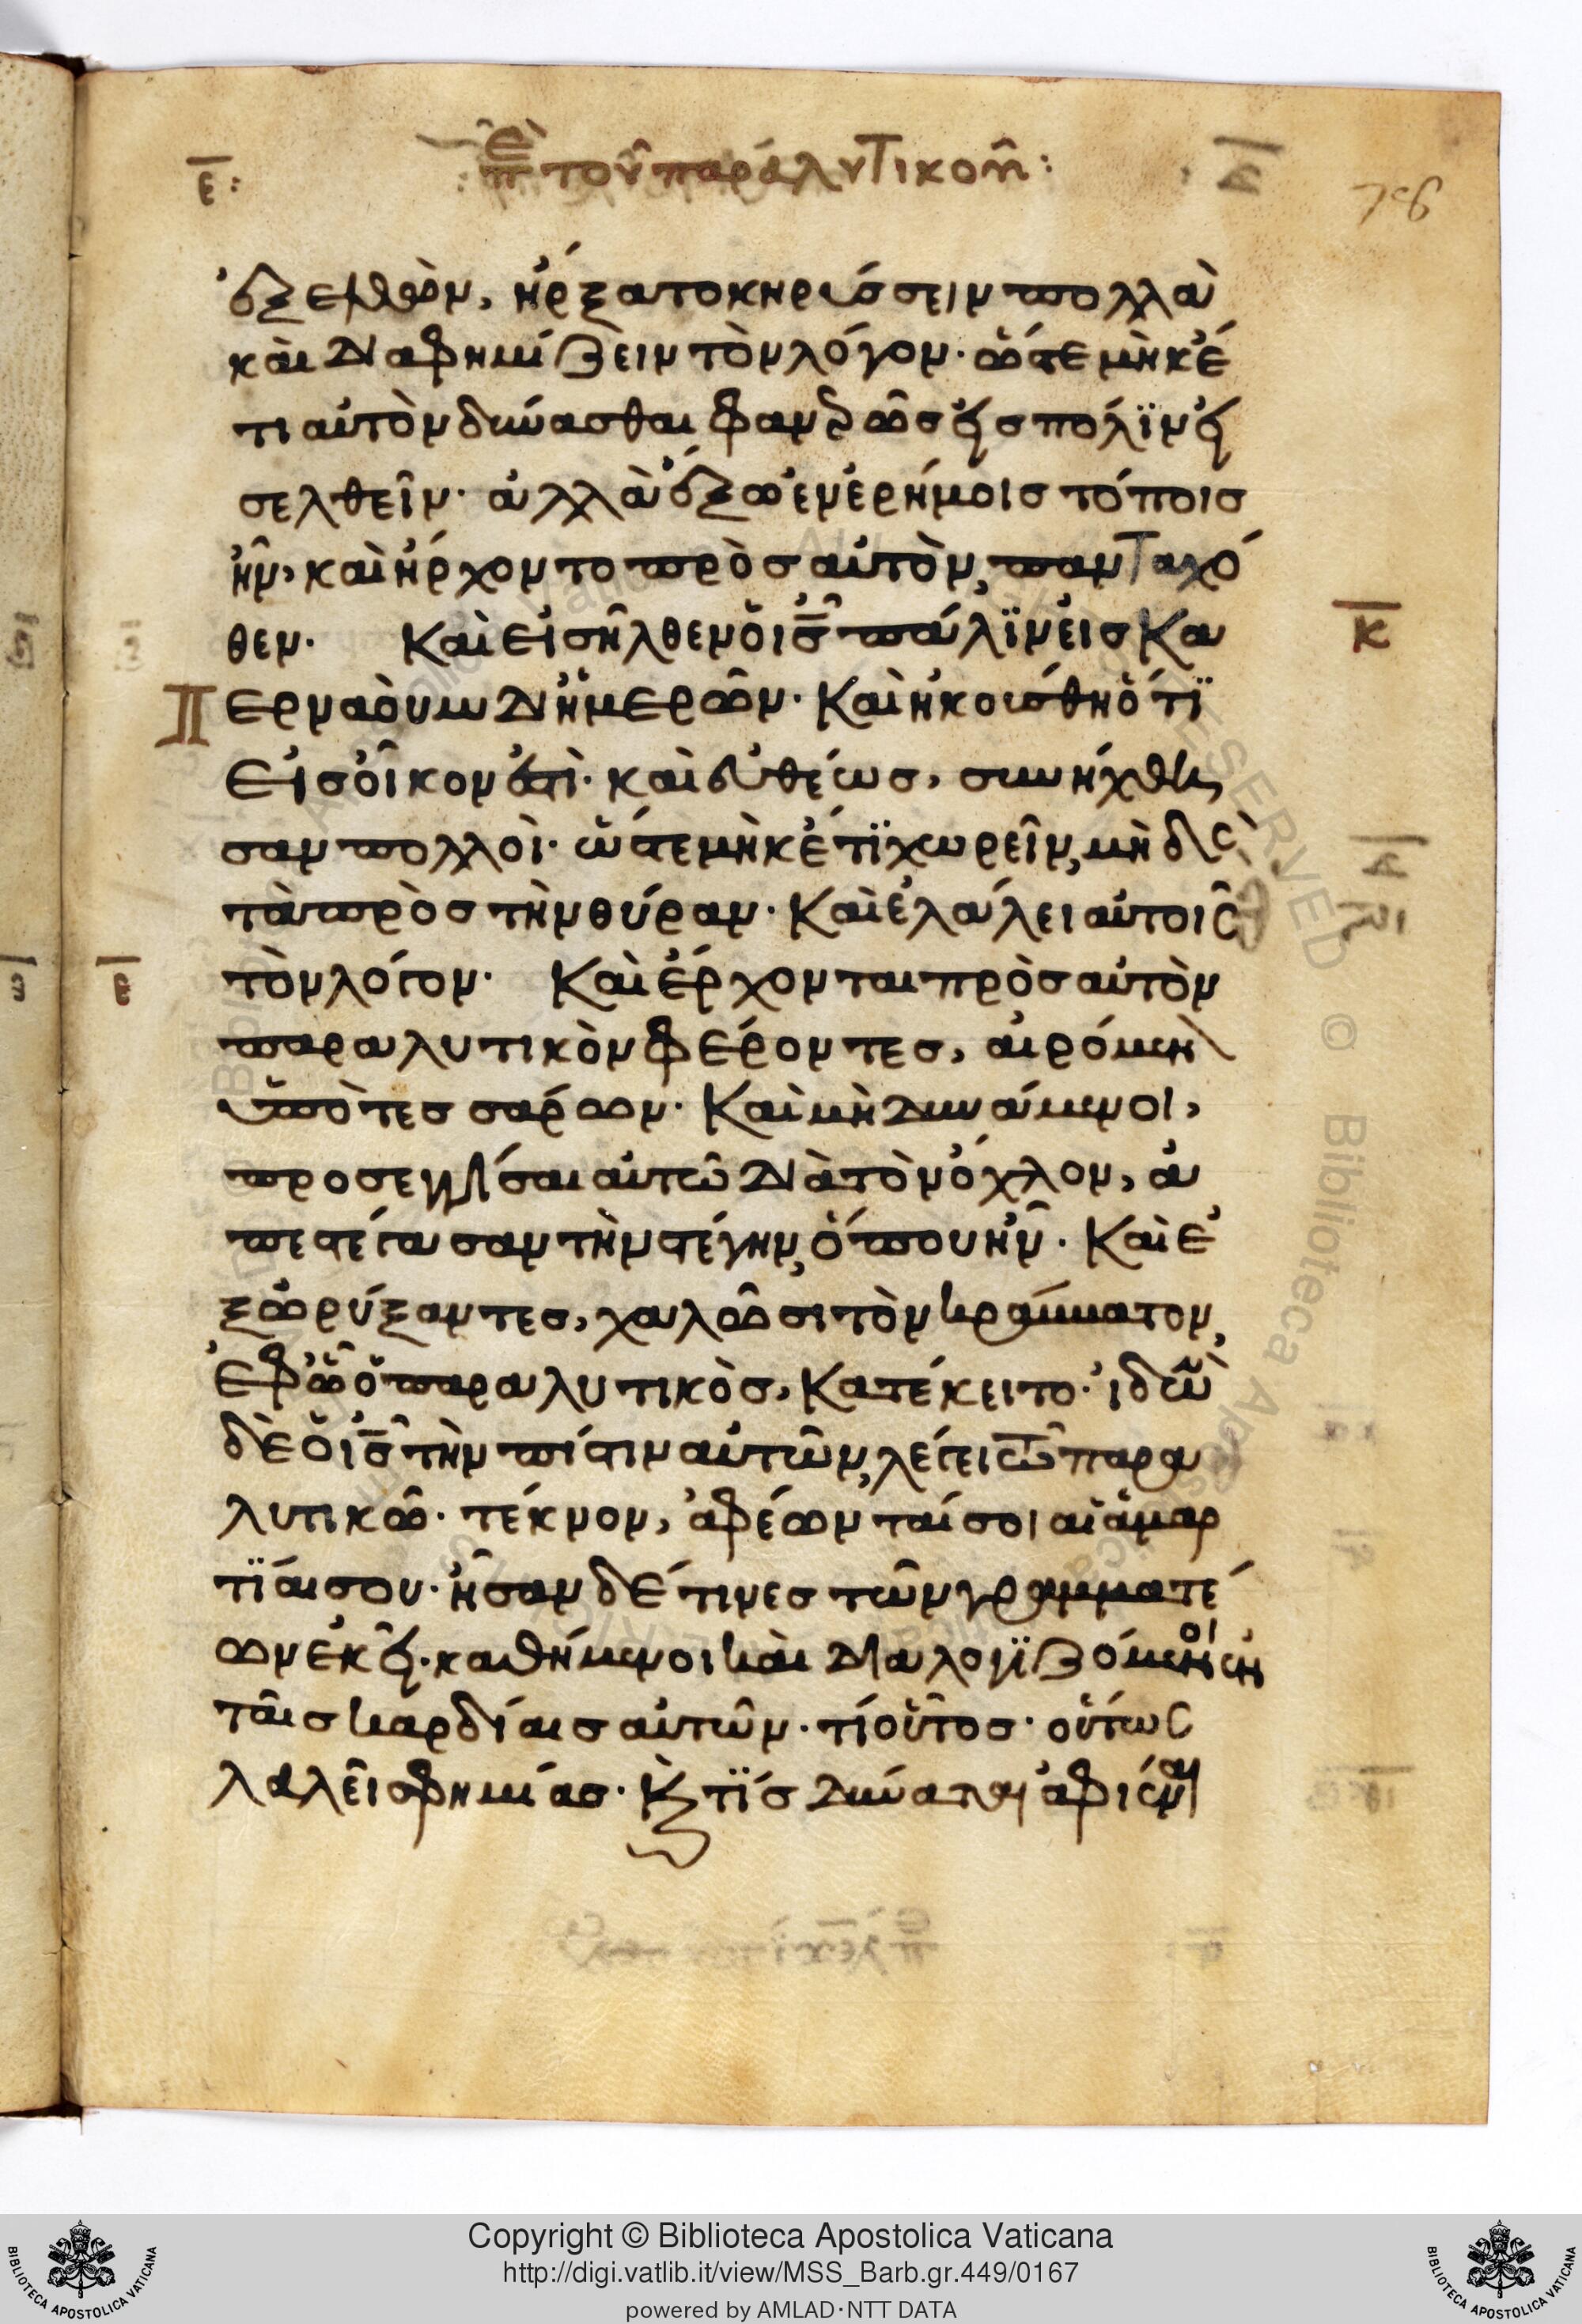 ε: περὶ τοῦ παραλυτικοῦ:
ἐξελθὼν, ἤρξατο κηρύσσειν πολλὰ
καὶ διαφημίζειν τὸν λόγον· ὥστε μηκέ
τι αὐτὸν δύνασθαι φανερῶς εἰς πόλϊν εἰ
σελθεῖν· ἀλλὰ ἔξω ἐν ἐρήμοις τόποις
ἦν, καὶ ἤρχοντο πρὸς αὐτὸν, πανταχό
θεν· Καὶ εἰσῆλθεν ὁ ις πάλϊν εἰς Κα
κ
περναοὺμ δι ἡμερῶν· Καὶ ἠκούσθη ὅτϊ
εἰς οἶκον ἐστὶ· καὶ εὐθέως, συνήχθη
σαν πολλοὶ· ὥστε μηκέτϊ χωρεῖν, μηδὲ
τὰ πρὸς τὴν θύραν· Καὶ ἐλάλει αὐτοῖς
ε
τὸν λόγον· Καὶ ἔρχονται πρὸς αὐτὸν
παραλυτικὸν φέροντες, αἰρόμενον
ὑπὸ τεσσάρων· Καὶ μὴ δυνάμενοι,
προσεγγίσαι αὐτῶ διὰ τὸν ὄχλον, ἀ
πεστέγασαν τὴν στέγην, ὅπου ἦν· Καὶ ἐ
ξωρύξαντες, χαλῶσι τὸν κράμματον,
ἐφ ᾧ ὁ παραλυτικὸς, Κατέκειτο· ἰδὼν
δὲ ὁ ις τὴν πίστιν αὐτῶν, λέγει τῶ παρα
λυτικῶ· τέκνον, ἀφέωνταί σοι αἱ ἁμαρ
τϊαι σου· ἦσαν δέ τινες τῶν γραμματέ
ων ἐκεῖ· καθήμενοι καὶ διαλογϊζόμενοι ἐν
ταῖς καρδίαις αὐτῶν· τί οὗτος· οὕτως
λαλεῖ βλασφημίας· Κτϊς δύναται ἀφιέναι
Copyright © Biblioteca Apostolica Vaticana
http://digi.vatlib.it/view/MSS_Barb.gr.449/0167
powered by AMLAD·NTT DATA